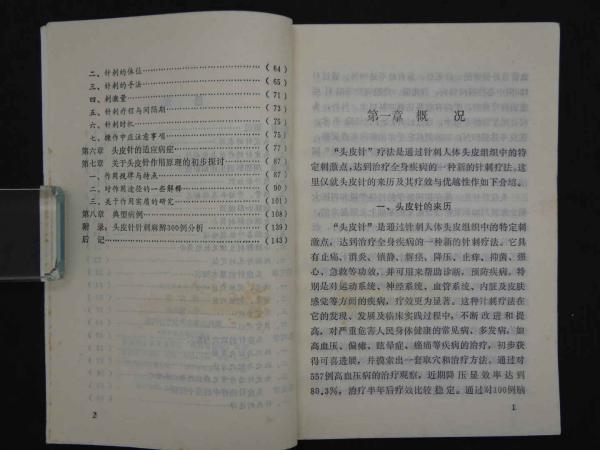 二、针刺的体位……………………( 64 )
三、针刺的手法……………………( 65 )
四、刺激量…………………………( 71 )
五、针刺疗程与间隔期……………( 73 )
六、针刺时机………………………( 75 )
七、操作中应注意事项……………( 76 )
第六章 头皮针的适应病症…………( 78 )
第七章 关于头皮针作用原理的初步探讨…( 87 )
一、作用规律与特点………………( 87 )
二、对作用途径的一些解释………( 90 )
三、关于作用实质的研究…………( 97 )
第八章 典型病例……………………( 108 )
附 录:头皮针针刺麻醉300例分析……( 139 )
后 记…………………………………( 143 )
2
第一章 概 况
“头皮针”疗法是通过针刺人体头皮组织中的特
定刺激点,达到治疗全身疾病的一种新的针刺疗法。这
里仅就头皮针的来历及其疗效与优越性作如下介绍。
一、头皮针的来历
“头皮针”是通过针刺人体头皮组织中的特定刺
激点,达到治疗全身疾病的一种新的针刺疗法。它具
有止痛、消炎、镇静、解痉、降压、止痒、抑菌、强
心、急救等功效,并可用来帮助诊断,预防疾病。特
别是对运动系统、神经系统、血管系统、内脏及皮肤
感觉等方面的疾病,疗效更为显著。这种针刺疗法在
它的发现、发展及临床实践过程中,不断改进和提
高,对严重危害人民身体健康的常见病、多发病,如
高血压、偏瘫、眩晕症、癌痛等疾病的治疗,初步获
得可喜进展,并摸索出一套取穴和治疗方法。通过对
557例高血压病的治疗观察,近期降压显效率达到
80.3%,治疗半年后疗效比较稳定。通过对100例脑
1